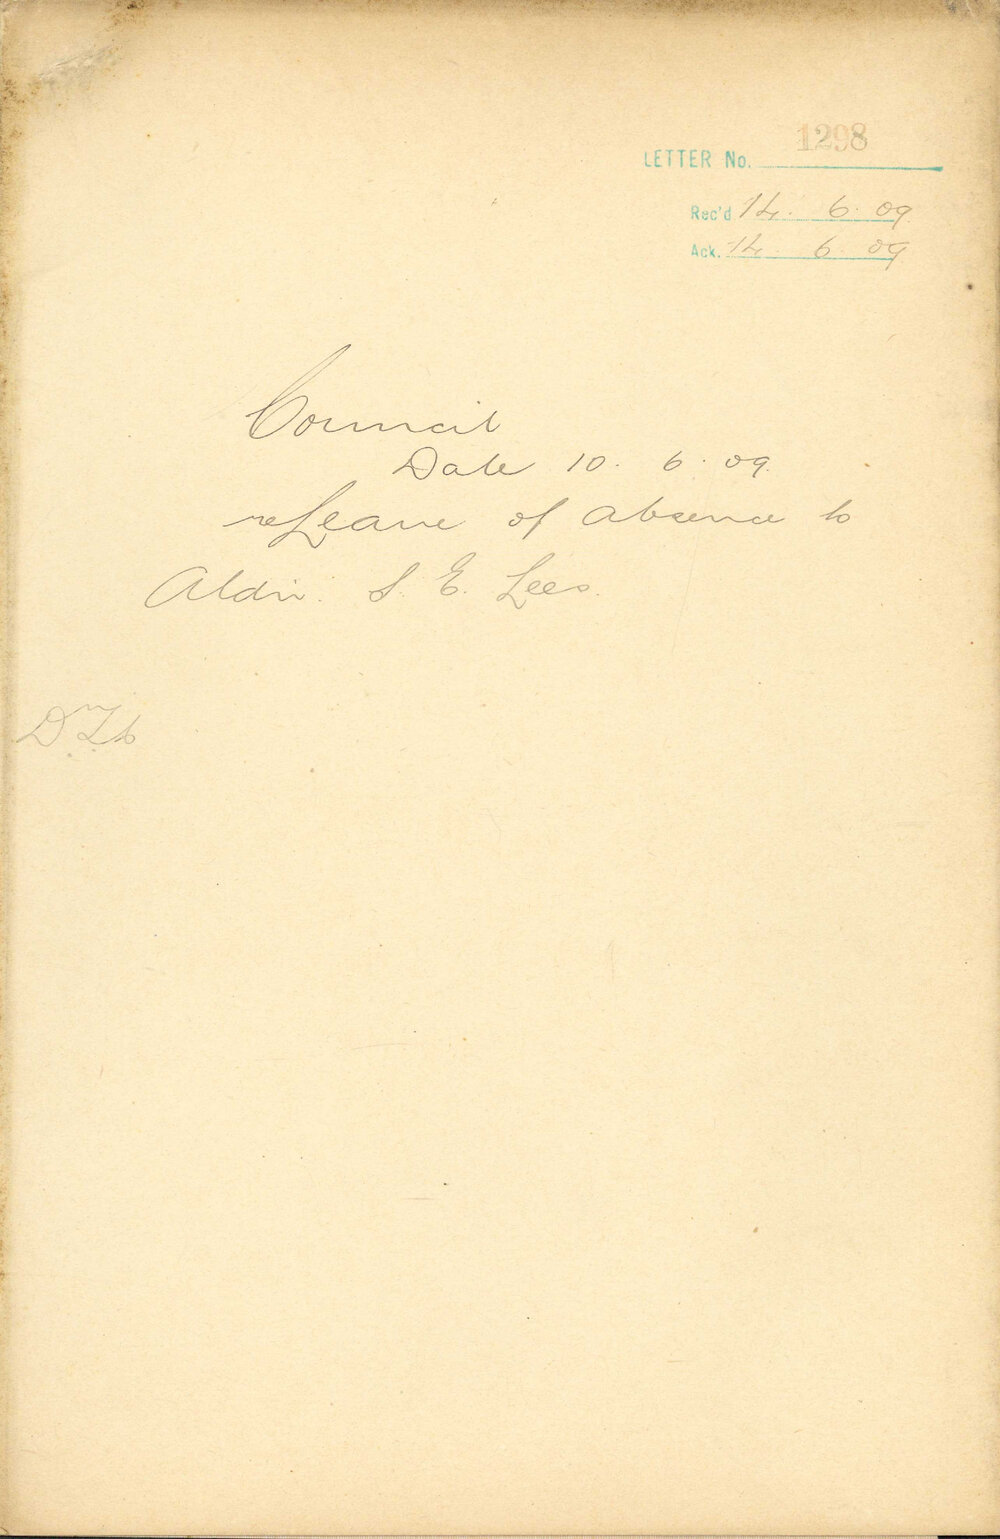 LETTER No. 1298
Rec'd 14. 6. 09
Ack. 14 6 09
Council
Date 10. 6. 09.
re Leave of absence to
Aldn. S. E. Lees.